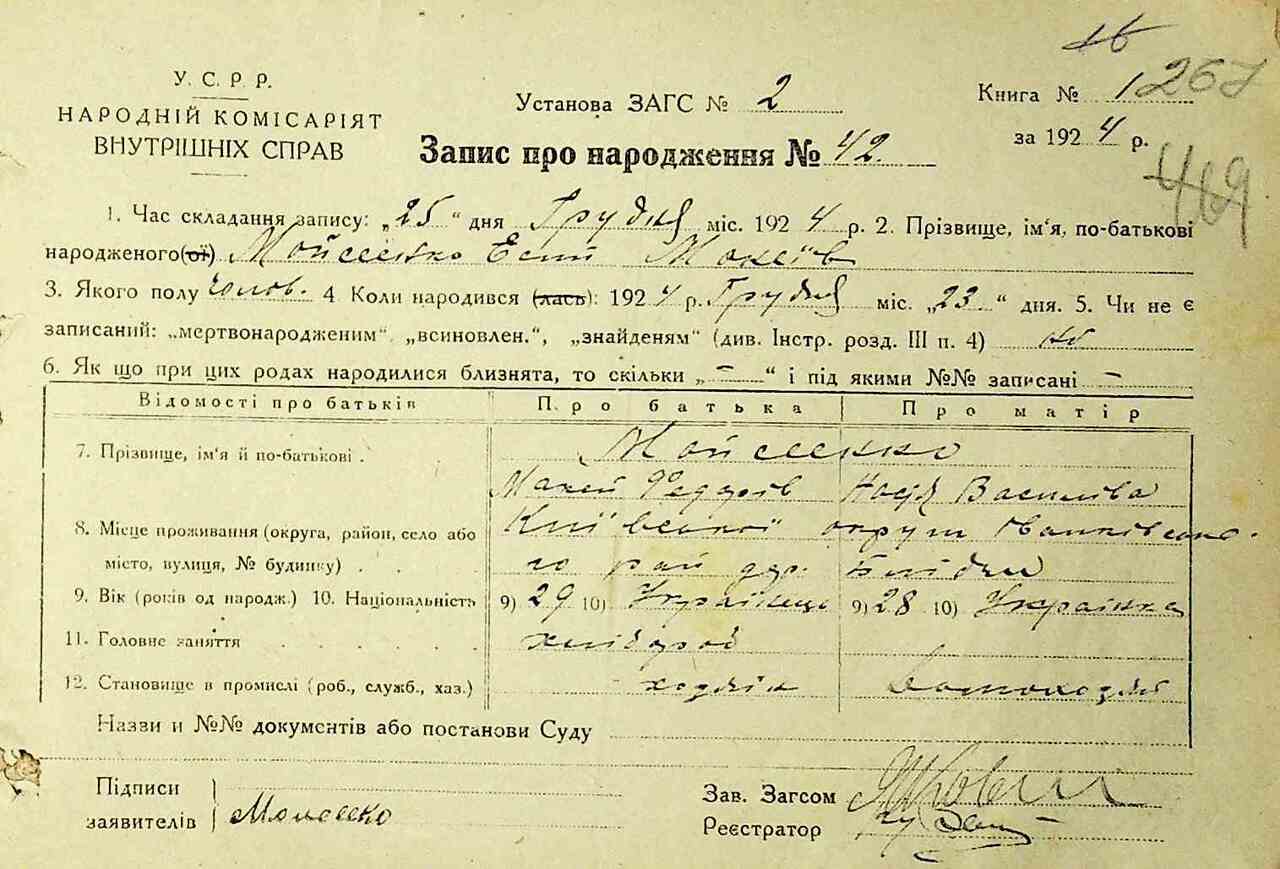 267
У. С. Р. Р.
НАРОДНІЙ КОМІСАРІЯТ
ВНУТРІШНІХ СПРАВ
Установа ЗАГС № 2
Книга № 1
за 1924 р.
Запис про народження № 42.
419
1. Час складання запису: „25“ дня Грудня міс. 1924 р. 2. Прізвище, ім‘я, по-батькові
народженого(ої) Мойсеенко Мокеїв
3. Якого полу чолов. 4. Коли народився (лась): 1924 р. Грудня міс. „23“ дня. 5. Чи не є
записаний: „мертвонародженим“, „всиновлен.“, „знайденям“ (див. Інстр. розд. III п. 4) ні
6. Як що при цих родах народилися близнята, то скільки „—“ і під якими №№ записані —
Відомості про батьків Про батька Про матір
7. Прізвище, ім‘я й по-батькові . Мойсеенко
Мокей Федорів Васильівна
8. Місце проживання (округа, район, село або Київської округи Іванківсько-
місто, вулиця, № будинку) . . го рай дер.
9. Вік (років од народж.) 10. Національність 9) 29 10) Українець 9) 28 10) Українка
11. Головне заняття хлібороб
12. Становище в промислі (роб., служб., хаз.) хозяїн
Назви и №№ документів або постанови Суду
Підписи
заявителів Моисеєко
Зав. Загсом
Реєстратор